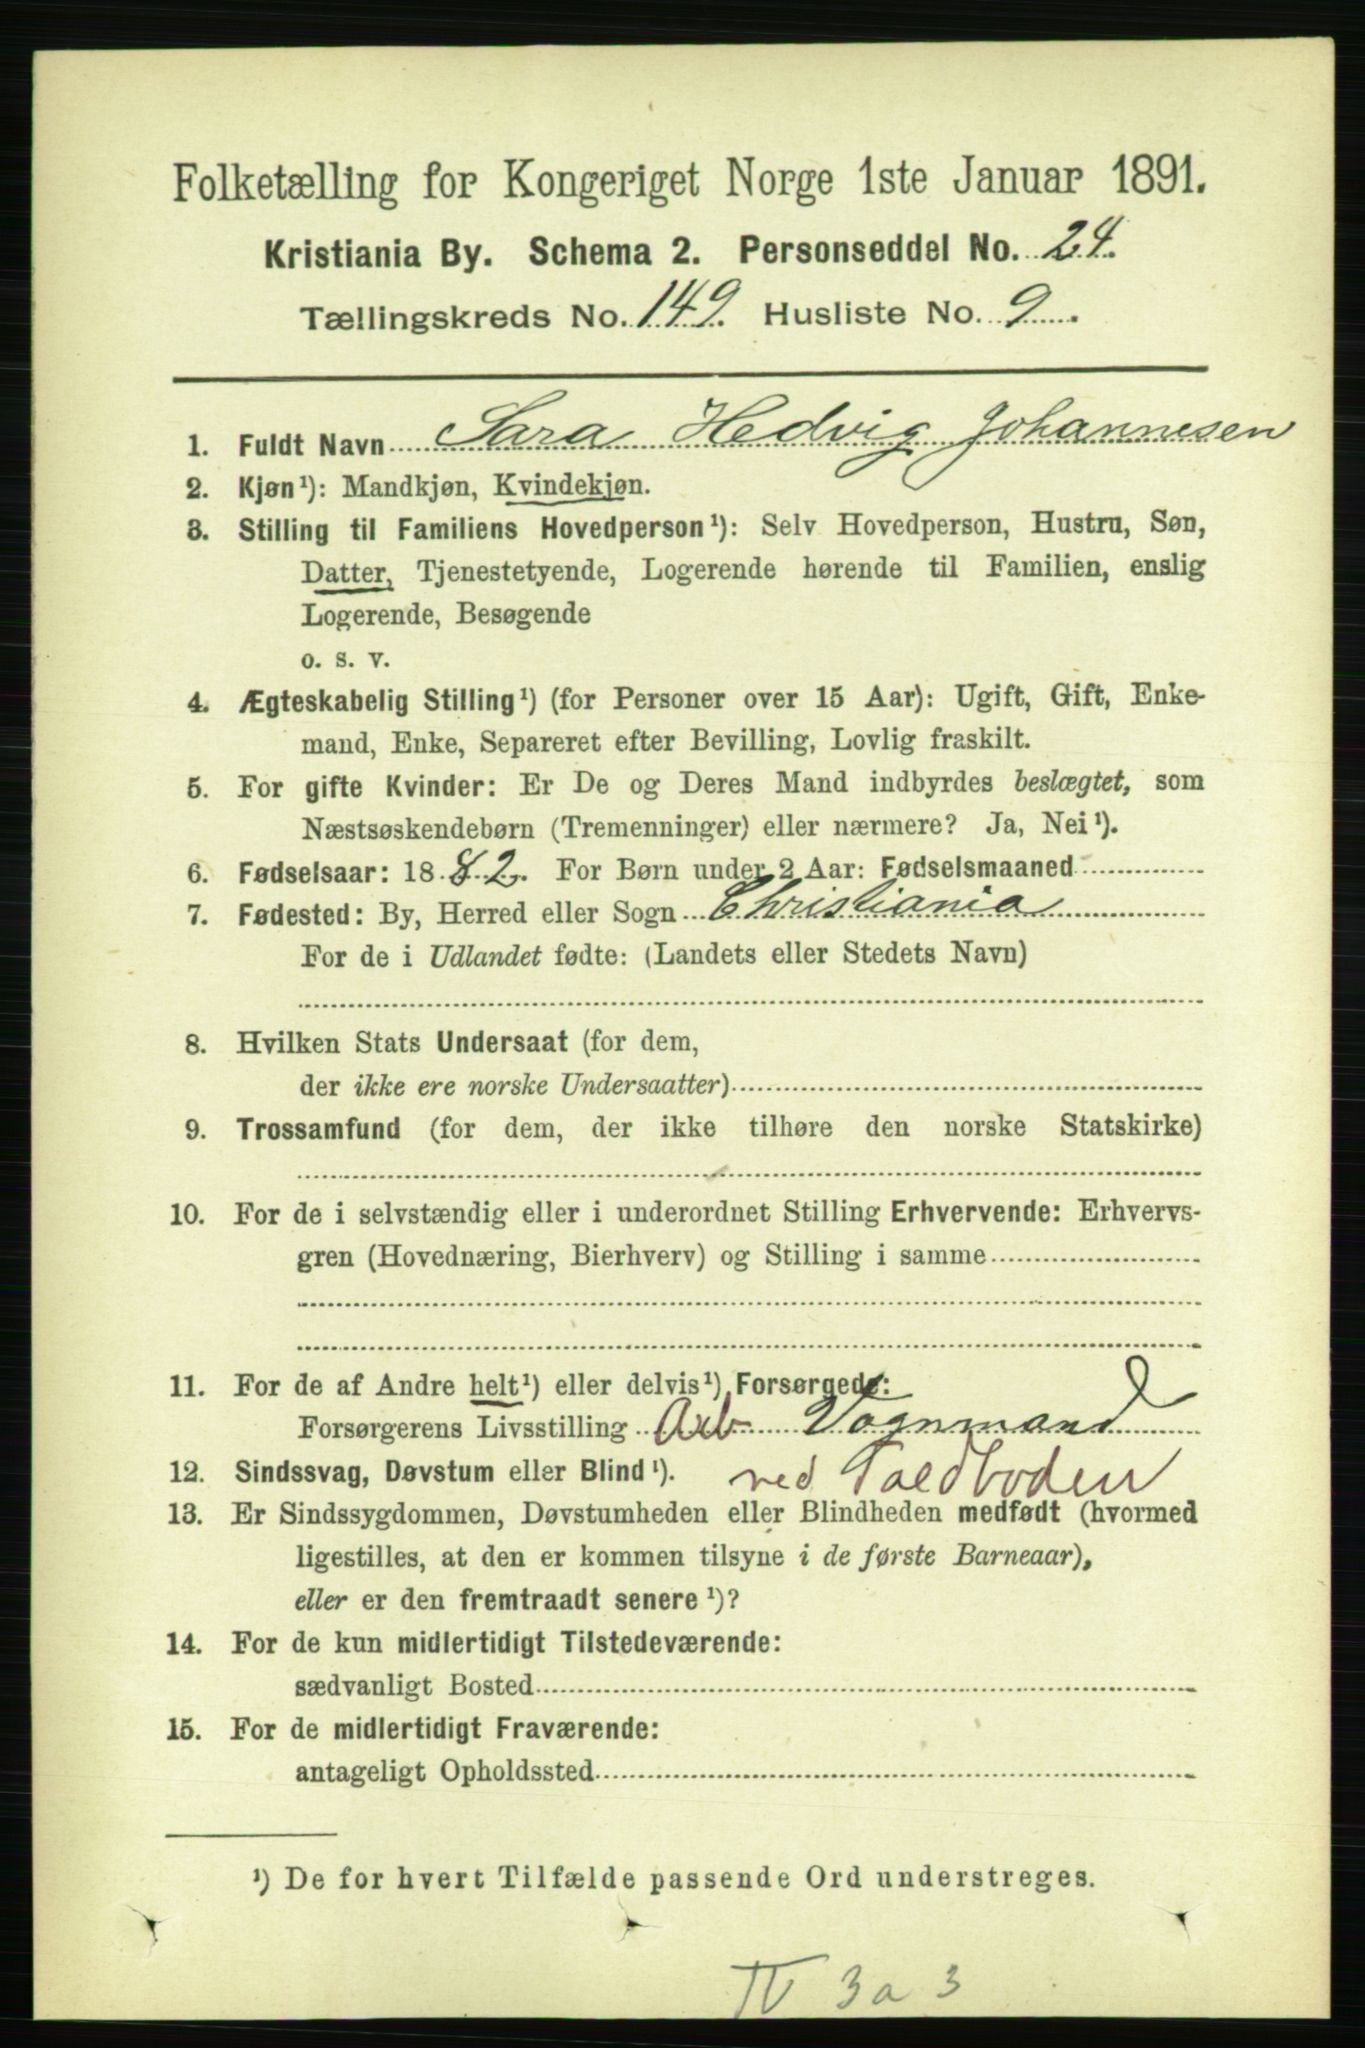 Folketælling for Kongeriget Norge 1ste Januar 1891.
Kristiania By. Schema 2. Personseddel No. 24.
Tællingskreds No. 149. Husliste No. 9.
1. Fuldt Navn Sara Hedvig Johannesen
2. Kjøn¹): Mandkjøn, Kvindekjøn.
3. Stilling til Familiens Hovedperson¹): Selv Hovedperson, Hustru, Søn,
Datter, Tjenestetyende, Logerende hørende til Familien, enslig
Logerende, Besøgende
o. s. v.
4. Ægteskabelig Stilling¹) (for Personer over 15 Aar): Ugift, Gift, Enke-
mand, Enke, Separeret efter Bevilling, Lovlig fraskilt.
5. For gifte Kvinder: Er De og Deres Mand indbyrdes beslægtet, som
Næstsøskendebørn (Tremenninger) eller nærmere? Ja, Nei¹).
6. Fødselsaar: 1882. For Børn under 2 Aar: Fødselsmaaned
7. Fødested: By, Herred eller Sogn Christiania
For de i Udlandet fødte: (Landets eller Stedets Navn)
8. Hvilken Stats Undersaat (for dem,
der ikke ere norske Undersaatter)
9. Trossamfund (for dem, der ikke tilhøre den norske Statskirke)
10. For de i selvstændig eller i underordnet Stilling Erhvervende: Erhvervs-
gren (Hovednæring, Bierhverv) og Stilling i samme
11. For de af Andre helt¹) eller delvis¹) Forsørgede:
Forsørgerens Livsstilling Arb Vognmand
12. Sindssvag, Døvstum eller Blind¹). ved Toldboden
13. Er Sindssygdommen, Døvstumheden eller Blindheden medfødt (hvormed
ligestilles, at den er kommen tilsyne i de første Barneaar),
eller er den fremtraadt senere¹)?
14. For de kun midlertidigt Tilstedeværende:
sædvanligt Bosted
15. For de midlertidigt Fraværende:
antageligt Opholdssted
¹) De for hvert Tilfælde passende Ord understreges.
IV 3a 3